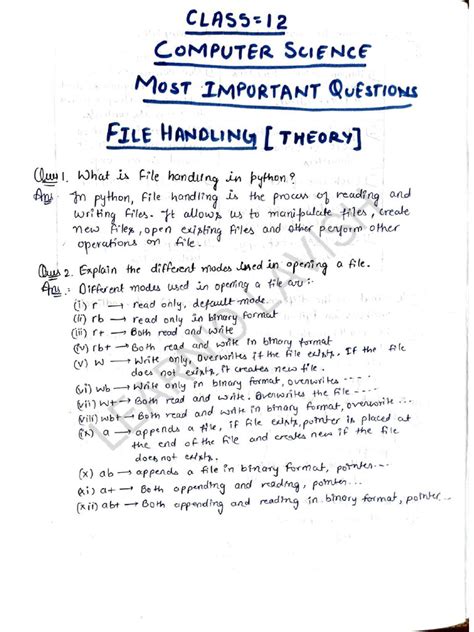 CLASS=12
COMPUTER SCIENCE
MOST IMPORTANT QUESTIONS
FILE HANDLING [THEORY]
Ques 1. What is file handling in python?
Ans: In python, file handling is the process of reading and
writing files. It allows us to manipulate files, create
new files, open existing files and other perform other
operations on file.
Ques 2. Explain the different modes used in opening a file.
Ans: Different modes used in opening a file are:-
(i) r → read only, default mode.
(ii) rb → read only in binary format
(iii) r+ → Both read and write
(iv) rb+ → Both read and write in binary format
(v) w → Write only, overwrites if the file exists. If the file
does not exists, it creates new file.
(vi) wb → Write only in binary format, overwrites ----
(vii) w+ → Both read and write. Overwrites the file ---
(viii) wb+ → Both read and write in binary format, overwrites ---
(ix) a → appends a file, if file exists, pointer is placed at
the end of the file and creates new if the file
does not exists.
(x) ab → appends a file in binary format, pointer---
(xi) a+ → Both appending and reading, pointer---
(xii) ab+ → Both appending and reading in binary format, pointer---